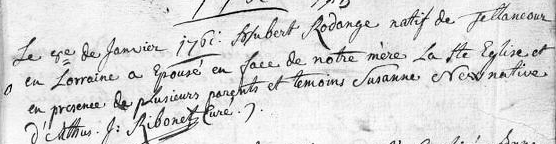 Le 5e de Janvier 1761: Hubert Rodange natif de Tellancour
en Lorraine a Epousé en face de notre mère La Ste Eglise et
en presence de plusieurs parents et temoins Susanne Nex native
d'Athus. J: Ribonet Curé.